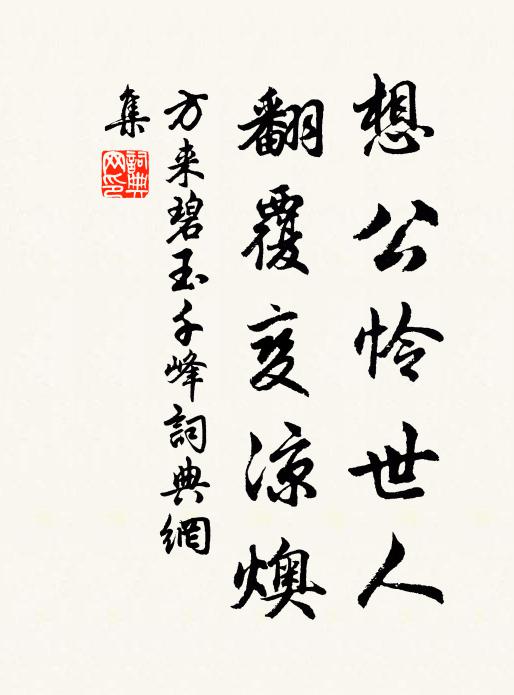 想公怜世人
翻覆变凉燠
方来碧玉千峰詞典網
集
詞典
网印